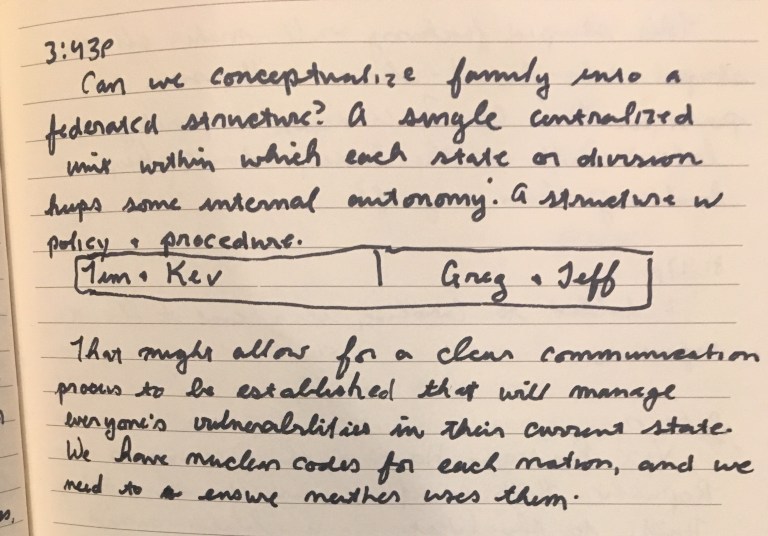 3:43P
Can we conceptualize family into a
federated structure? A single centralized
unit within which each state or division
keeps some internal autonomy. A structure w
policy + procedure.
Tim + Kev | Greg + Jeff
That might allow for a clear communication
process to be established that will manage
everyone's vulnerabilities in their current state.
We have nuclear codes for each nation, and we
need to ensure neither uses them.